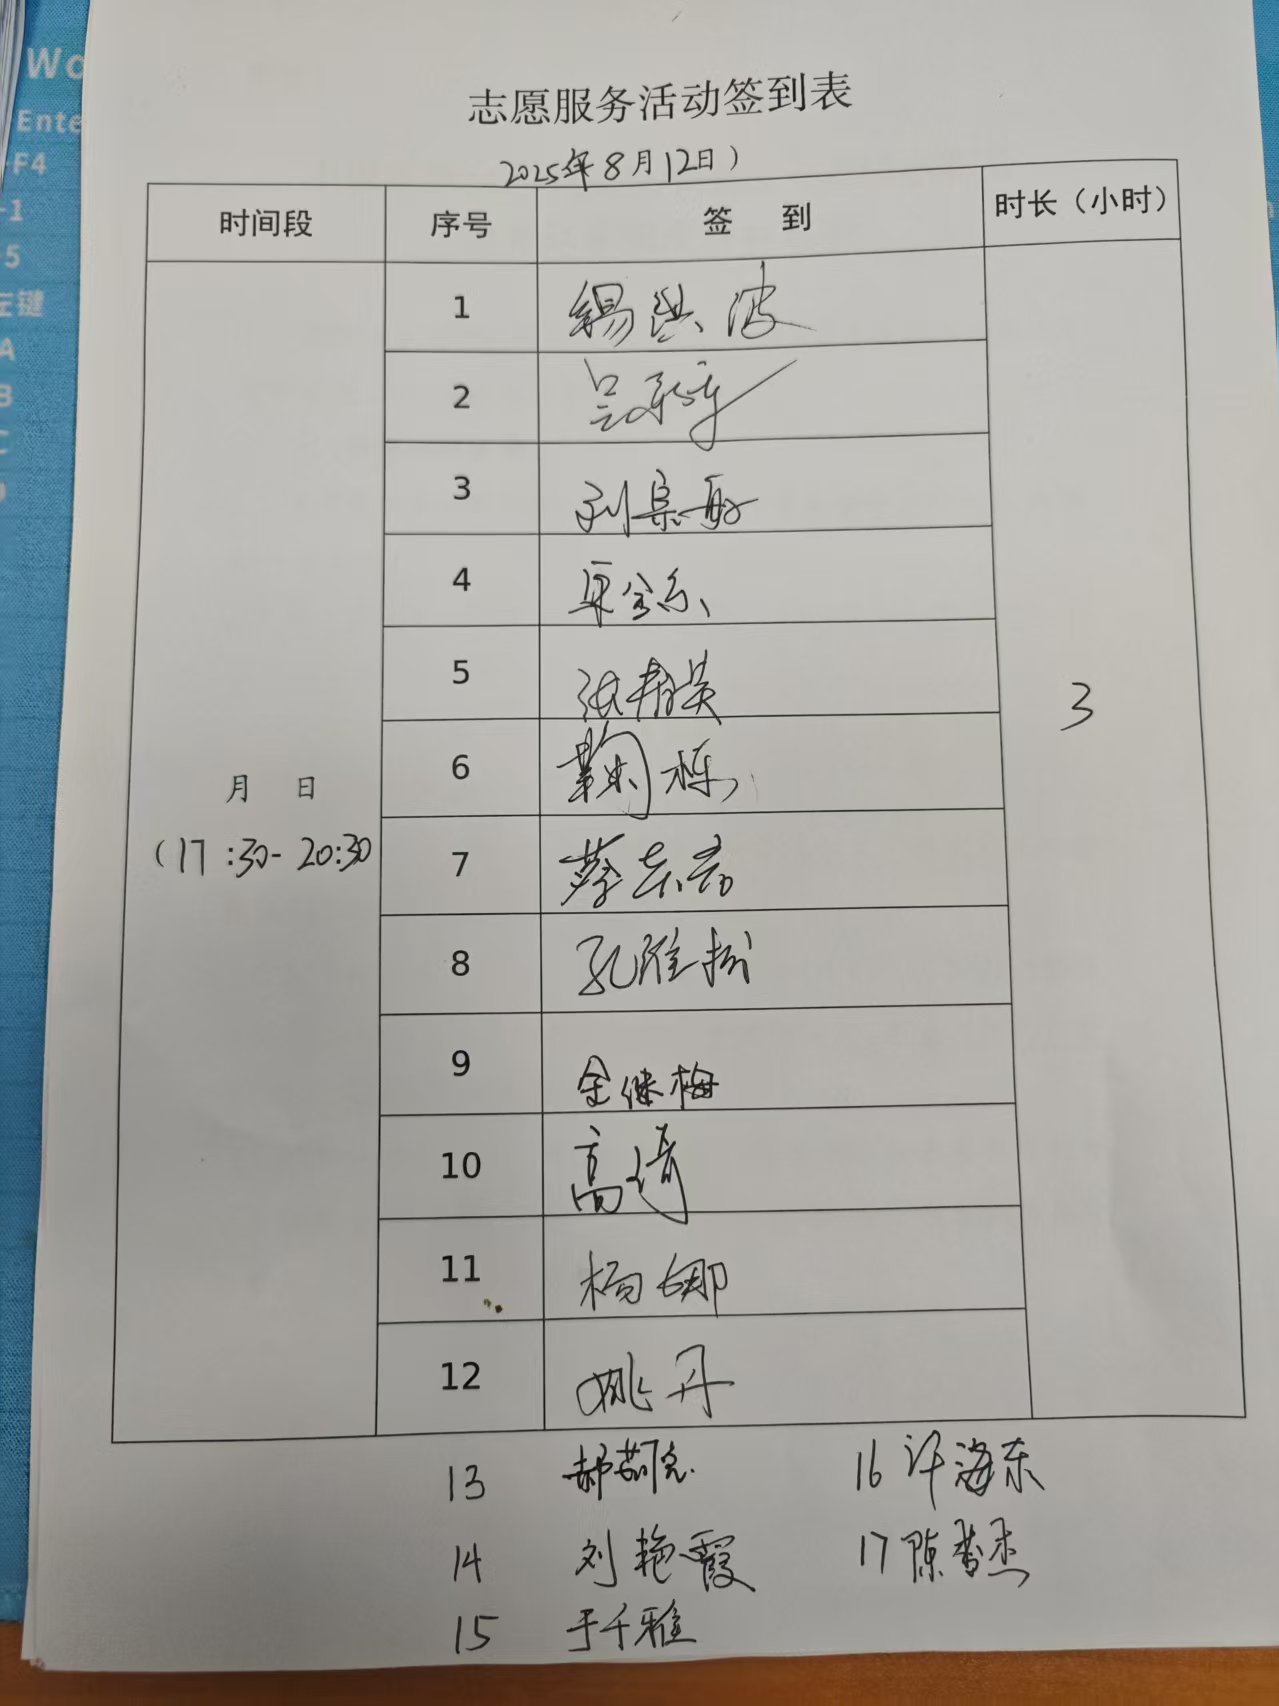 Wo
Ente
-F4
-1
-5
左键
A
B
C
志愿服务活动签到表
2025年8月12日）
时间段 序号 签 到 时长（小时）
1 锡洪波
2
3 刘
4 金
5 张春英
6 鞠栎
7 蔡志宏
8 孔雅
9 金继梅
10 高琦
11 杨娜
12 姚丹
月 日
（17:30-20:30
3
13 郝 16 许海东
14 刘艳霞 17 陈春杰
15 于千雅